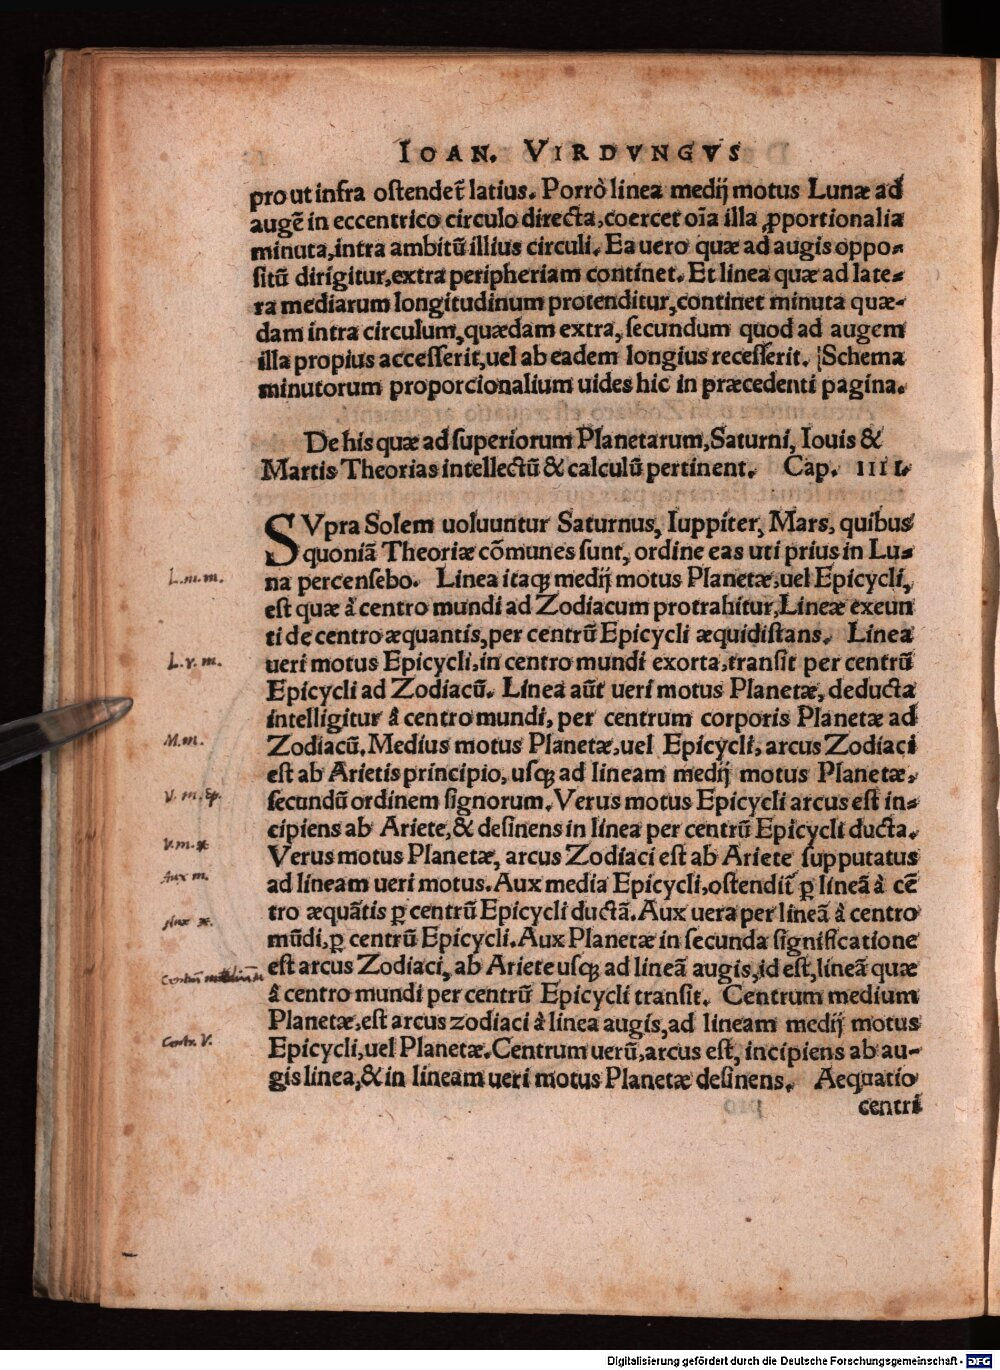 IOAN. VIRDVNGVS
pro ut infra oſtendet̃ latius. Porrò linea medij motus Lunæ ad
augẽ in eccentrico circulo directa, coercet oĩa illa ꝓportionalia
minuta, intra ambitũ illius circuli. Ea uero quæ ad augis oppo-
ſitũ dirigitur, extra peripheriam continet. Et linea quæ ad late-
ra mediarum longitudinum protenditur, continet minuta quæ-
dam intra circulum, quædam extra, ſecundum quod ad augem
illa propius acceſſerit, uel ab eadem longius receſſerit. Schema
minutorum proporcionalium uides hic in præcedenti pagina.
De his quæ ad ſuperiorum Planetarum, Saturni, Iouis &
Martis Theorias intellectũ & calculũ pertinent. Cap. IIII.
SVpra Solem uoluuntur Saturnus, Iuppiter, Mars, quibus
quoniã Theoriæ cõmunes ſunt, ordine eas uti prius in Lu-
L.m.m.
na percenſebo. Linea itaqꝫ medij motus Planetæ, uel Epicycli,
eſt quæ à centro mundi ad Zodiacum protrahitur, Lineæ exeun
ti de centro æquantis, per centrũ Epicycli æquidiſtans. Linea
L.v.m.
ueri motus Epicycli, in centro mundi exorta, tranſit per centrũ
Epicycli ad Zodiacũ. Linea aũt ueri motus Planetæ, deducta
intelligitur à centro mundi, per centrum corporis Planetæ ad
M.m.
Zodiacũ. Medius motus Planetæ, uel Epicycli, arcus Zodiaci
eſt ab Arietis principio, uſqꝫ ad lineam medij motus Planetæ,
V.m.Ep.
ſecundũ ordinem ſignorum. Verus motus Epicycli arcus eſt in-
cipiens ab Ariete, & deſinens in linea per centrũ Epicycli ducta.
V.m.
Verus motus Planetæ, arcus Zodiaci eſt ab Ariete ſupputatus
Aux m.
ad lineam ueri motus. Aux media Epicycli, oſtendit̃ ꝑ lineã à cẽ
tro æquãtis ꝑ centrũ Epicycli ductã. Aux uera per lineã à centro
Aux
mũdi, ꝑ centrũ Epicycli. Aux Planetæ in ſecunda ſignificatione
eſt arcus Zodiaci, ab Ariete uſqꝫ ad lineã augis, id eſt, lineã quæ
à centro mundi per centrũ Epicycli tranſit. Centrum medium
Planetæ, eſt arcus zodiaci à linea augis, ad lineam medij motus
Centr. V.
Epicycli, uel Planetæ. Centrum uerũ, arcus eſt, incipiens ab au-
gis linea, & in lineam ueri motus Planetæ deſinens. Aequatio
centri
Digitalisierung gefördert durch die Deutsche Forschungsgemeinschaft - DFG